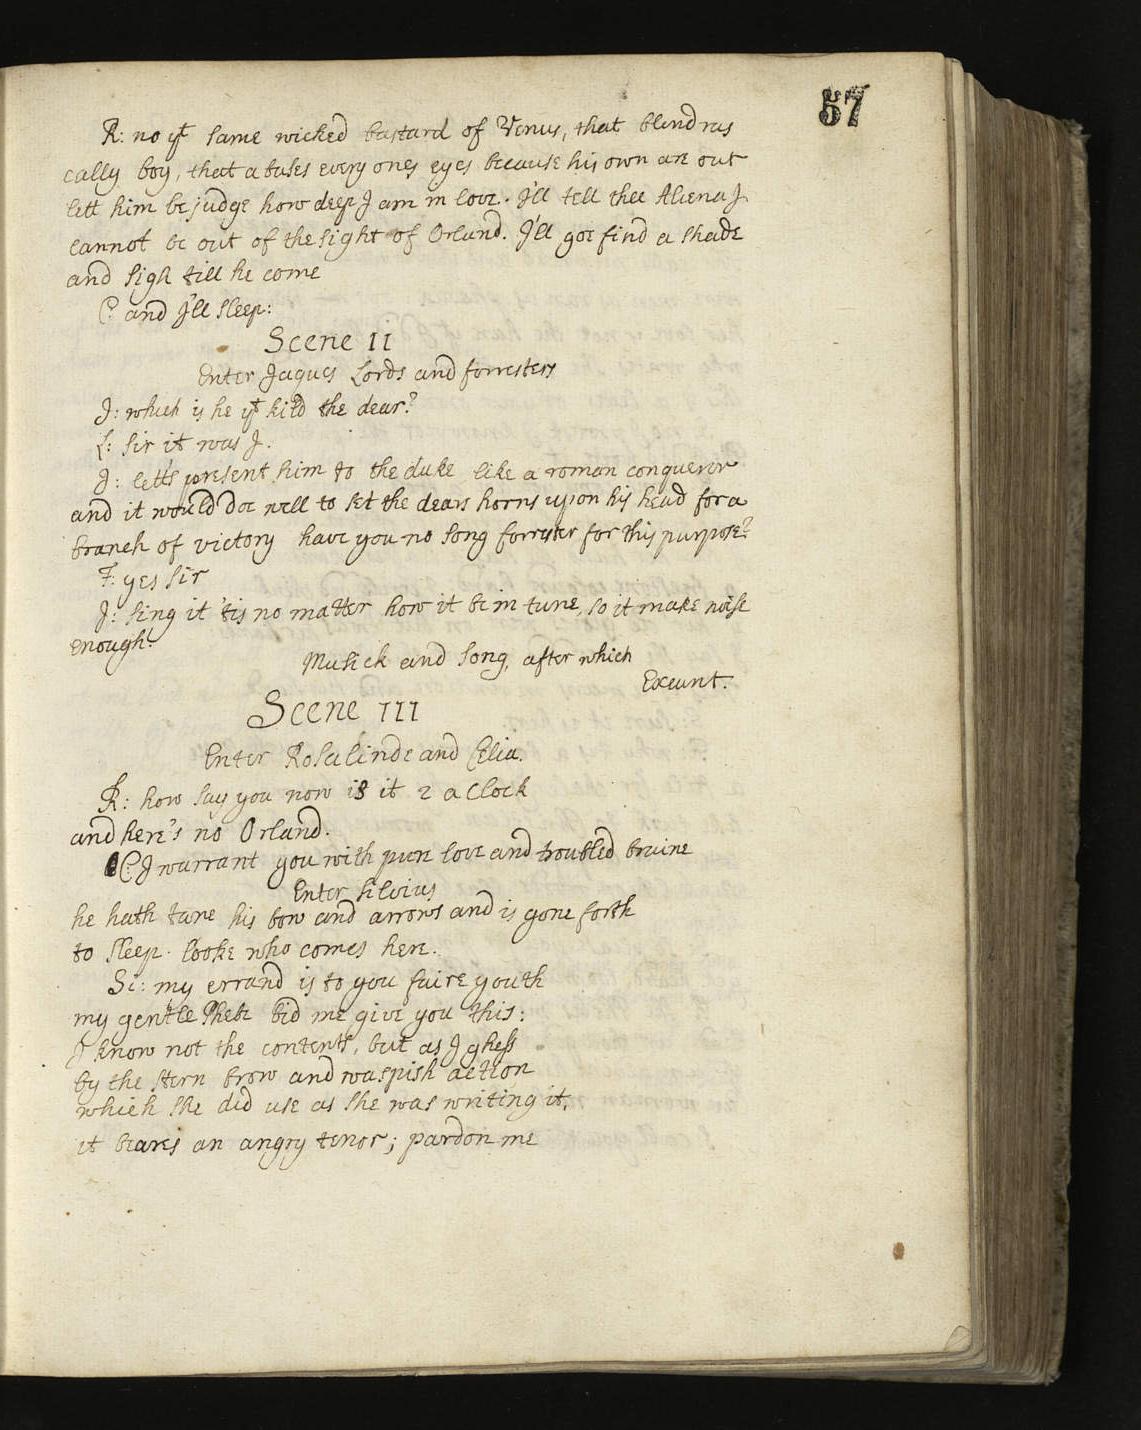 57
R: no yt same wicked bastard of Venus, that blind ras
cally boy, that abuses every ones eyes because his own are out
lett him be judge how deep I am in love. I'll tell thee Aliena I
cannot be out of the sight of Orland. I'll goe find a shade
and sigh till he come
C: and I'll sleep:
Scene II
Enter Jaques Lords and forresters
J: which is he yt kild the dear?
L: Sir it was I.
J: lett's present him to the duke like a roman conqueror
and it would doe well to set the dears horns upon his head for a
branch of victory have you no song forrester for this purpose?
F: yes Sir
J: sing it 'tis no matter how it be in tune, so it make noise
enough!
Musick and song, after which
Exeunt.
Scene III
Enter Rosalinde and Celia.
R: how say you now is it 2 a Clock
and here's no Orland.
C: I warrant you with pure love and troubled braine
Enter Silvius
he hath tane his bow and arrows and is gone forth
to sleep. looke who comes here.
Si: my errand is to you faire youth
my gentle Phebe bid me give you this:
I know not the contents, but as I ghess
by the stern brow and waspish action
which she did use as she was writing it,
it beares an angry tenor; pardon me